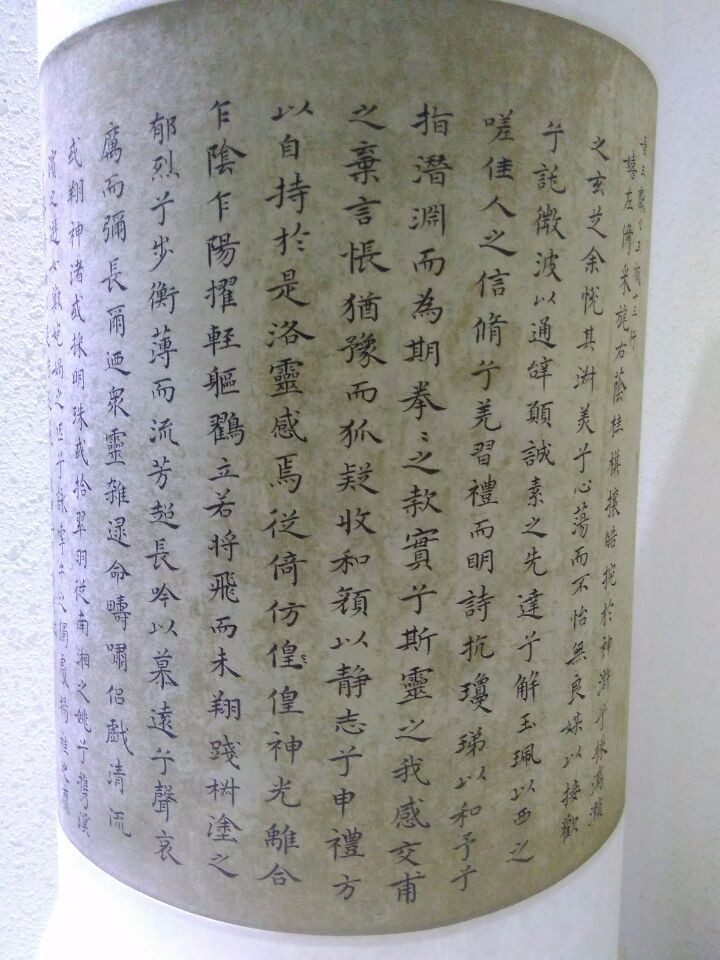 十三行
嬉左倚采旄右蔭桂棋攘皓捥於神滸兮採湍瀨
之玄芝余悅其淑美兮心蕩而不怡無良媒以接歡
兮託微波以通辭願誠素之先達兮解玉珮以西之
嗟佳人之信脩兮羌習禮而明詩抗瓊珶以和予兮
指潛淵而為期拳〻之款實兮斯靈之我感交甫
之棄言悵猶豫而狐疑收和顏以靜志兮申禮方
以自持於是洛靈感焉徙倚仿偟偟神光離合
乍陰乍陽擢輕軀鶴立若將飛而未翔踐椒塗之
郁烈兮步衡薄而流芳超長吟以慕遠兮聲哀
厲而彌長爾迺衆靈雜遝命疇嘯侶戲清流
或翔神渚或採明珠或拾翠羽從南湘之姚兮攜漢
濱之遊女歎媧之匹兮詠牽牛之獨處揚桂